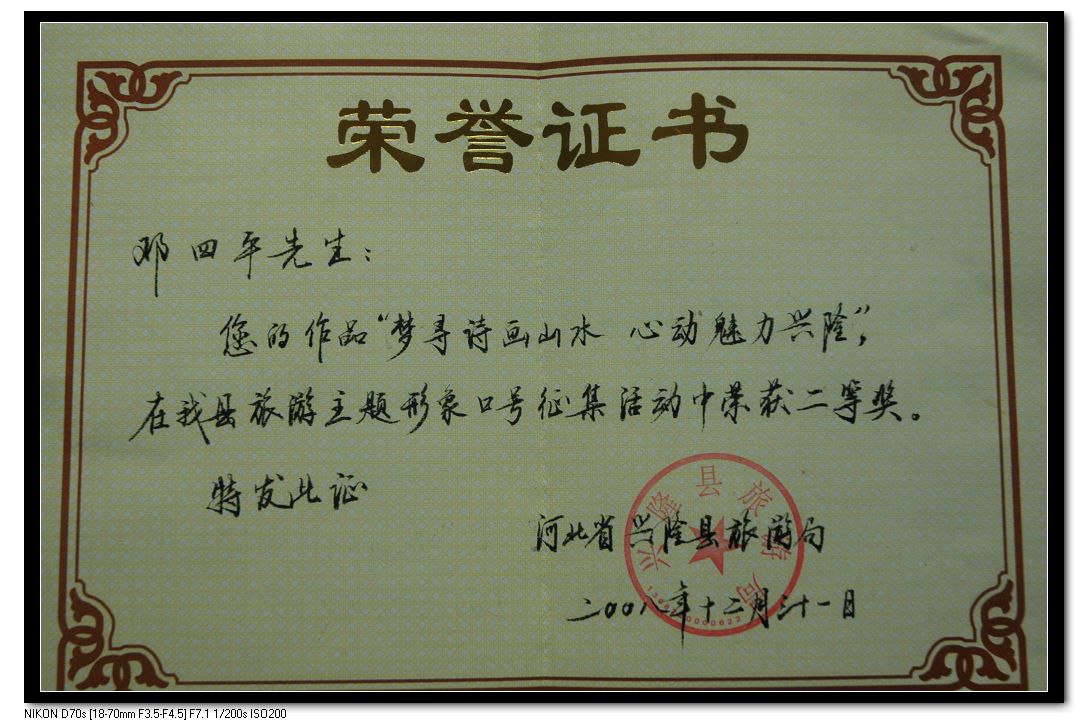 荣誉证书
邓四平先生：
您的作品“梦寻诗画山水 心动魅力兴隆”，
在我县旅游主题形象口号征集活动中荣获二等奖。
特发此证
河北省兴隆县旅游局
兴隆县旅游局
二00八年十二月三十一日
NIKON D70s [18-70mm F3.5-F4.5] F7.1 1/200s ISO200